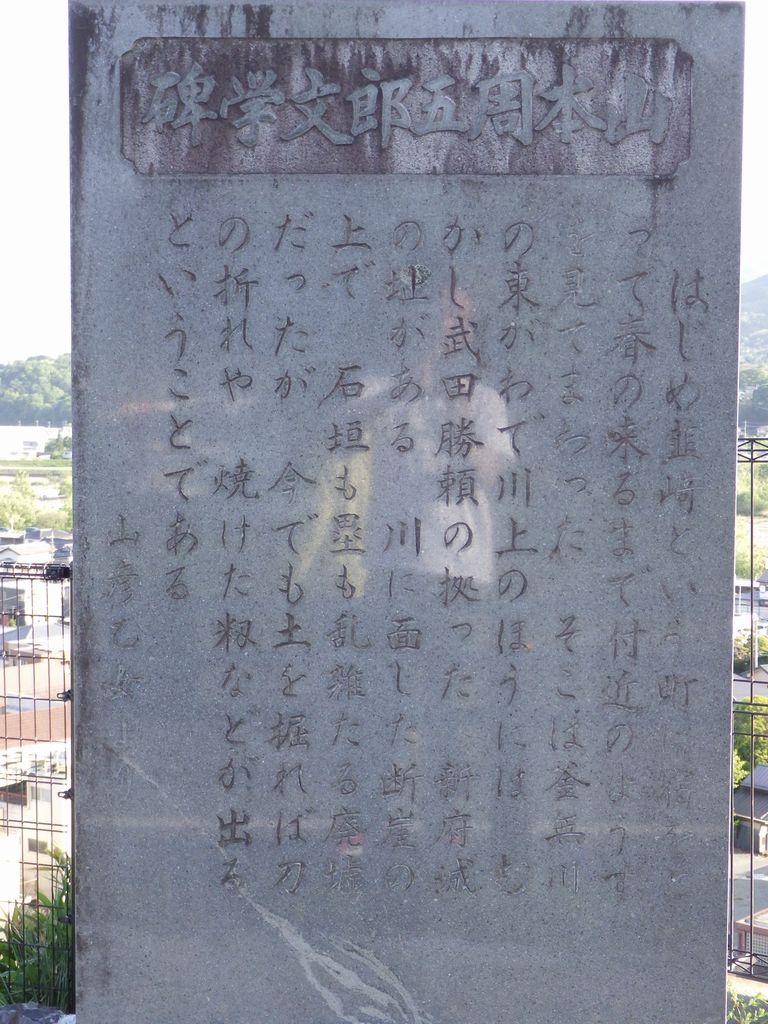 山本周五郎文学碑
はじめ韮崎という町に宿をと
って春の来るまで付近のようす
を見てまわった　そこは釜無川
の東がわで川上のほうには　む
かし武田勝頼の拠った　新府城
の址がある　川に面した断崖の
上で　石垣も塁も乱雑たる廃墟
だったが　今でも土を掘れば刀
の折れや　焼けた籾などが出る
ということである
山彦乙女より